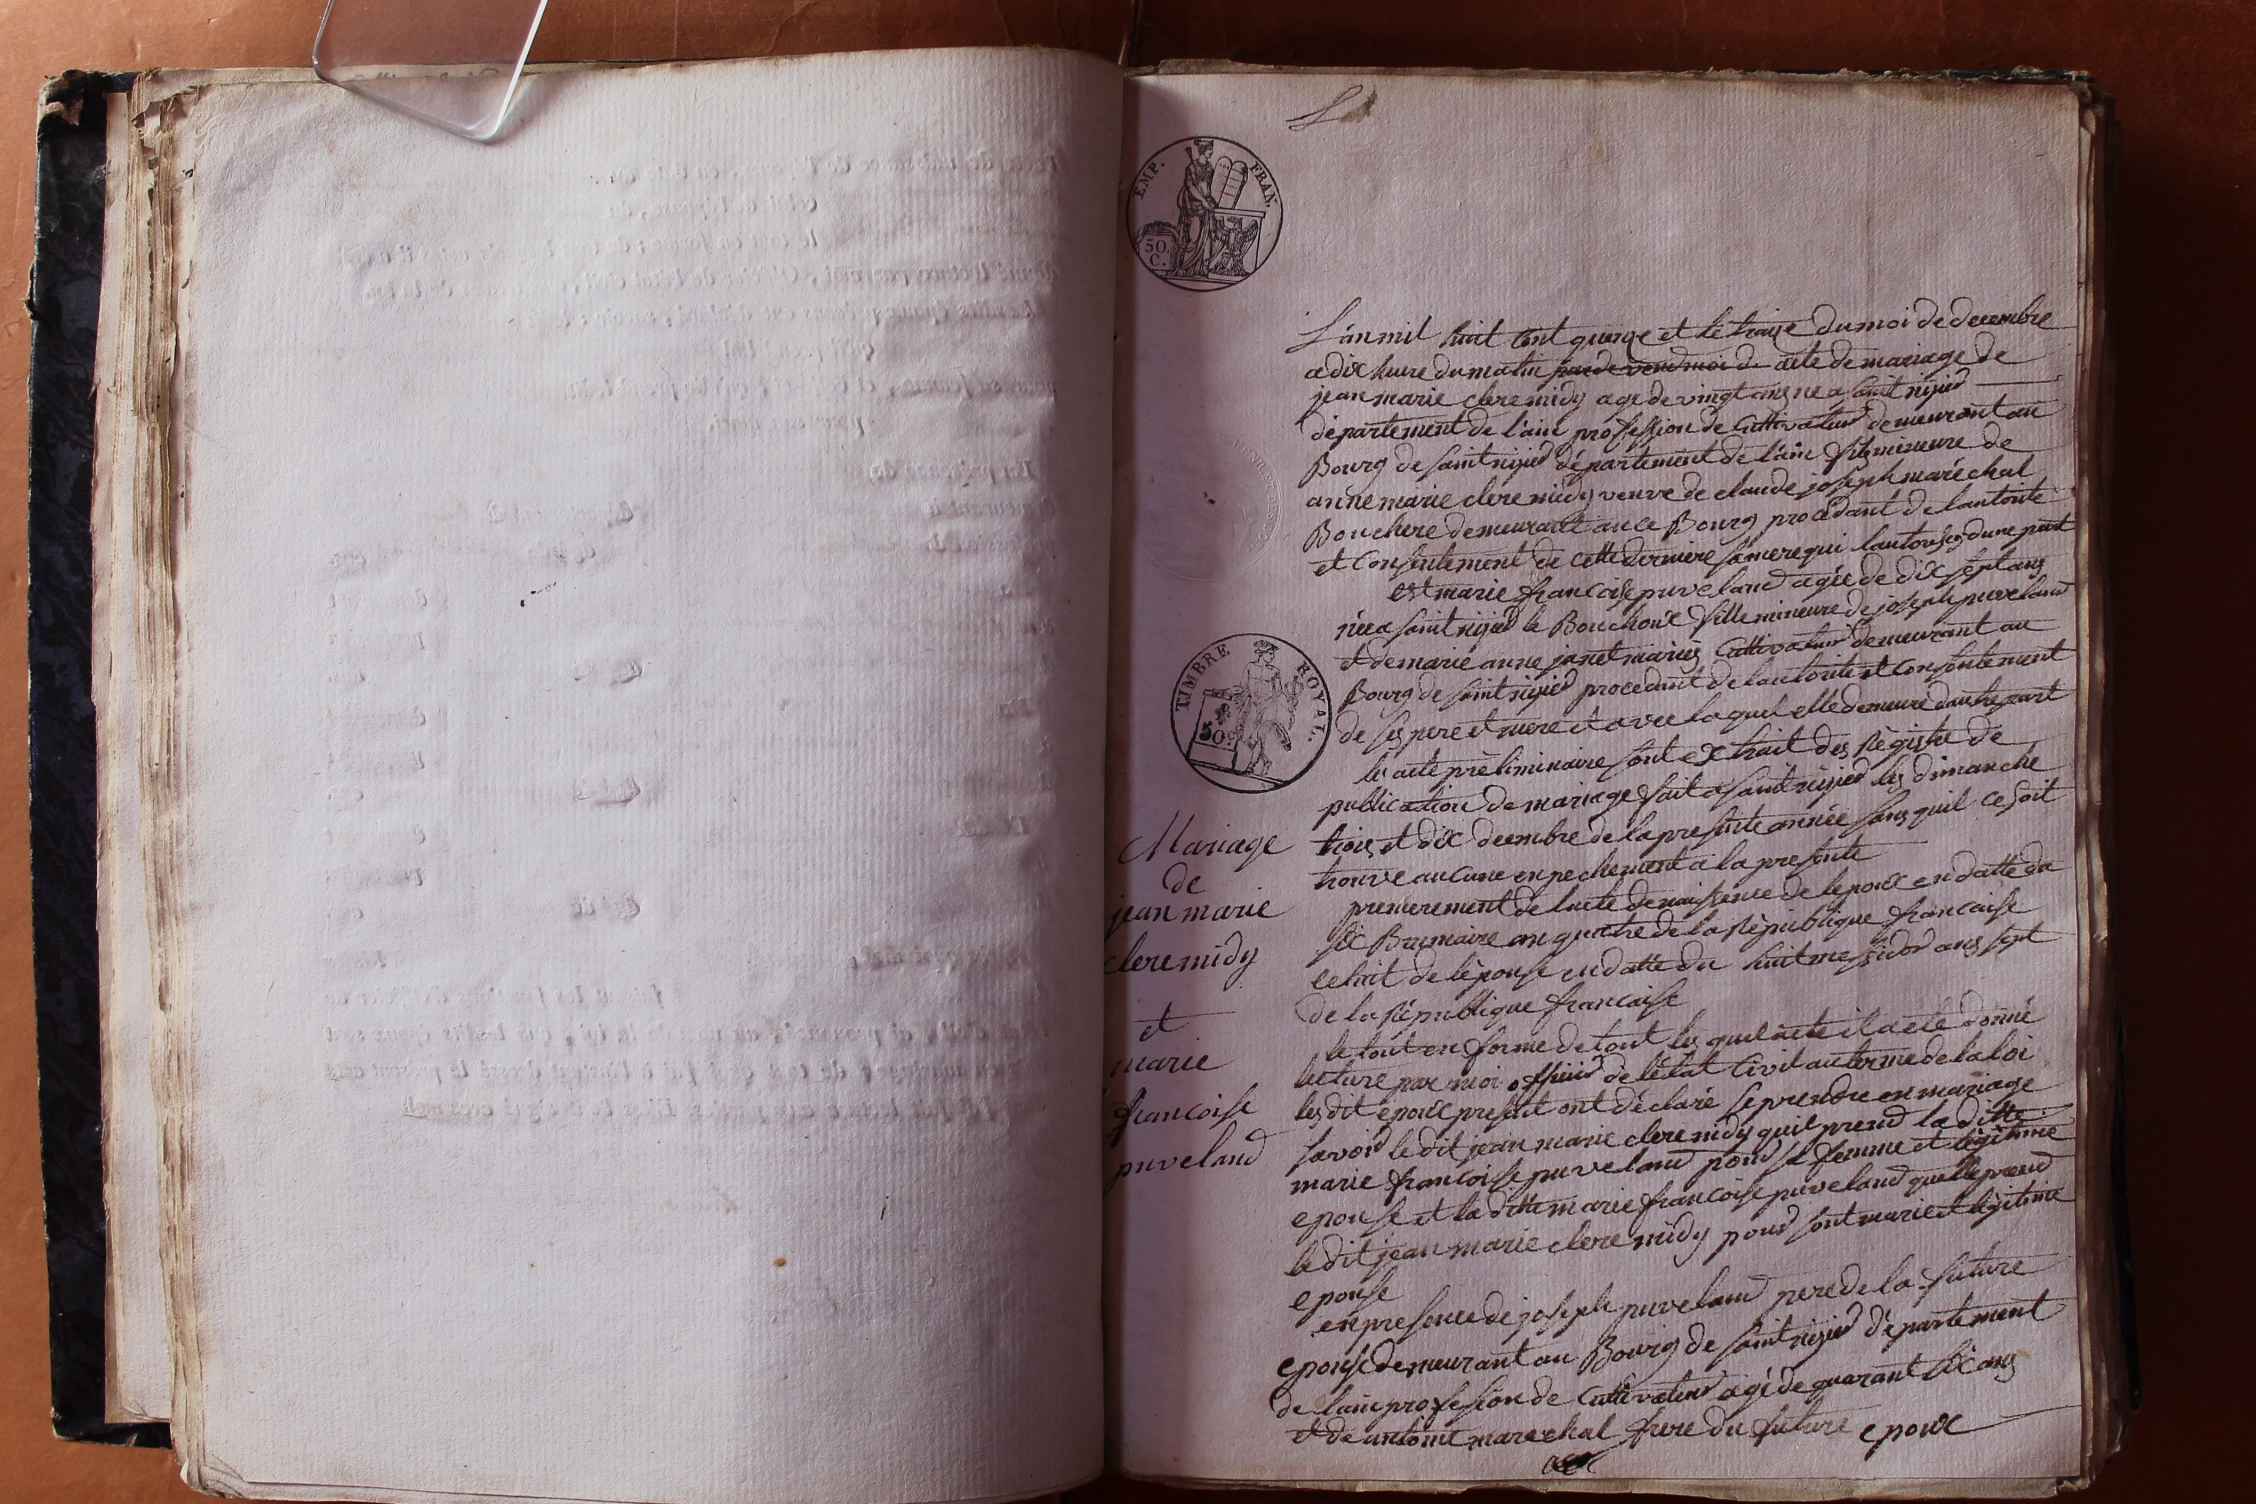 EMP. FRAN.
50.
C.
L'an mil huit cent quinze et le traize du moi de decembre
a dix heure du matin acte de mariage de
jean marie cleremidy age de vingt ans ne a saint nizied
département de l'ain profession de Cultivateur demeurant au
Bourg de saint nizied département de l'ain fils mineure de
anne marie cleremidy veuve de claude joseph maréchal
Bouchere demeurant au ce Bourg procédant de lautorité
et Consentement de cette derniere sa mere qui lautorise dune part
est marie francoise puveland agée de dix sept ans
née a saint nizied le Bouchoux fille mineure de joseph puveland
et de marie anne janet mariés Cultivateur demeurant au
Bourg de saint nizied procedant de lautorité et Consentement
de ses pere et mere et avec laquel elle demeure dautre part
les acte préliminaire sont extrait des Régistre de
publication de mariage fait a saint nizied les dimanche
trois et dix decembre de la presente année sans quil ce soit
trouvé aucune enpechement a la presente
premierement de lacte denaissence de lepoux en datte du
six Brumaire an quatre de la République francaise
celuit de lépouse en datte du huit messidor ans sept
de la République francaise
le tout en forme de tout les quel acte il a été donné
lecture par moi officied de létat Civil au terme de la loi
les dit epoux present ont déclaré se prendre en mariage
savoir le dit jean marie cleremidy quil prend la ditte
marie francoise puveland pour sa femme et légitime
epouse et la ditte marie francoise puveland quelle prend
le dit jean marie cleremidy pour sont marie et légitime
epouse
en presence de joseph puveland pere de la future
epouse demeurant au Bourg de saint nizied département
de lain profession de Cultivateur agé de quarant six ans
et de antoine marechal frere du future epoux
TIMBRE ROYAL.
50c
Mariage
de
jean marie
cleremidy
et
marie
francoise
puveland